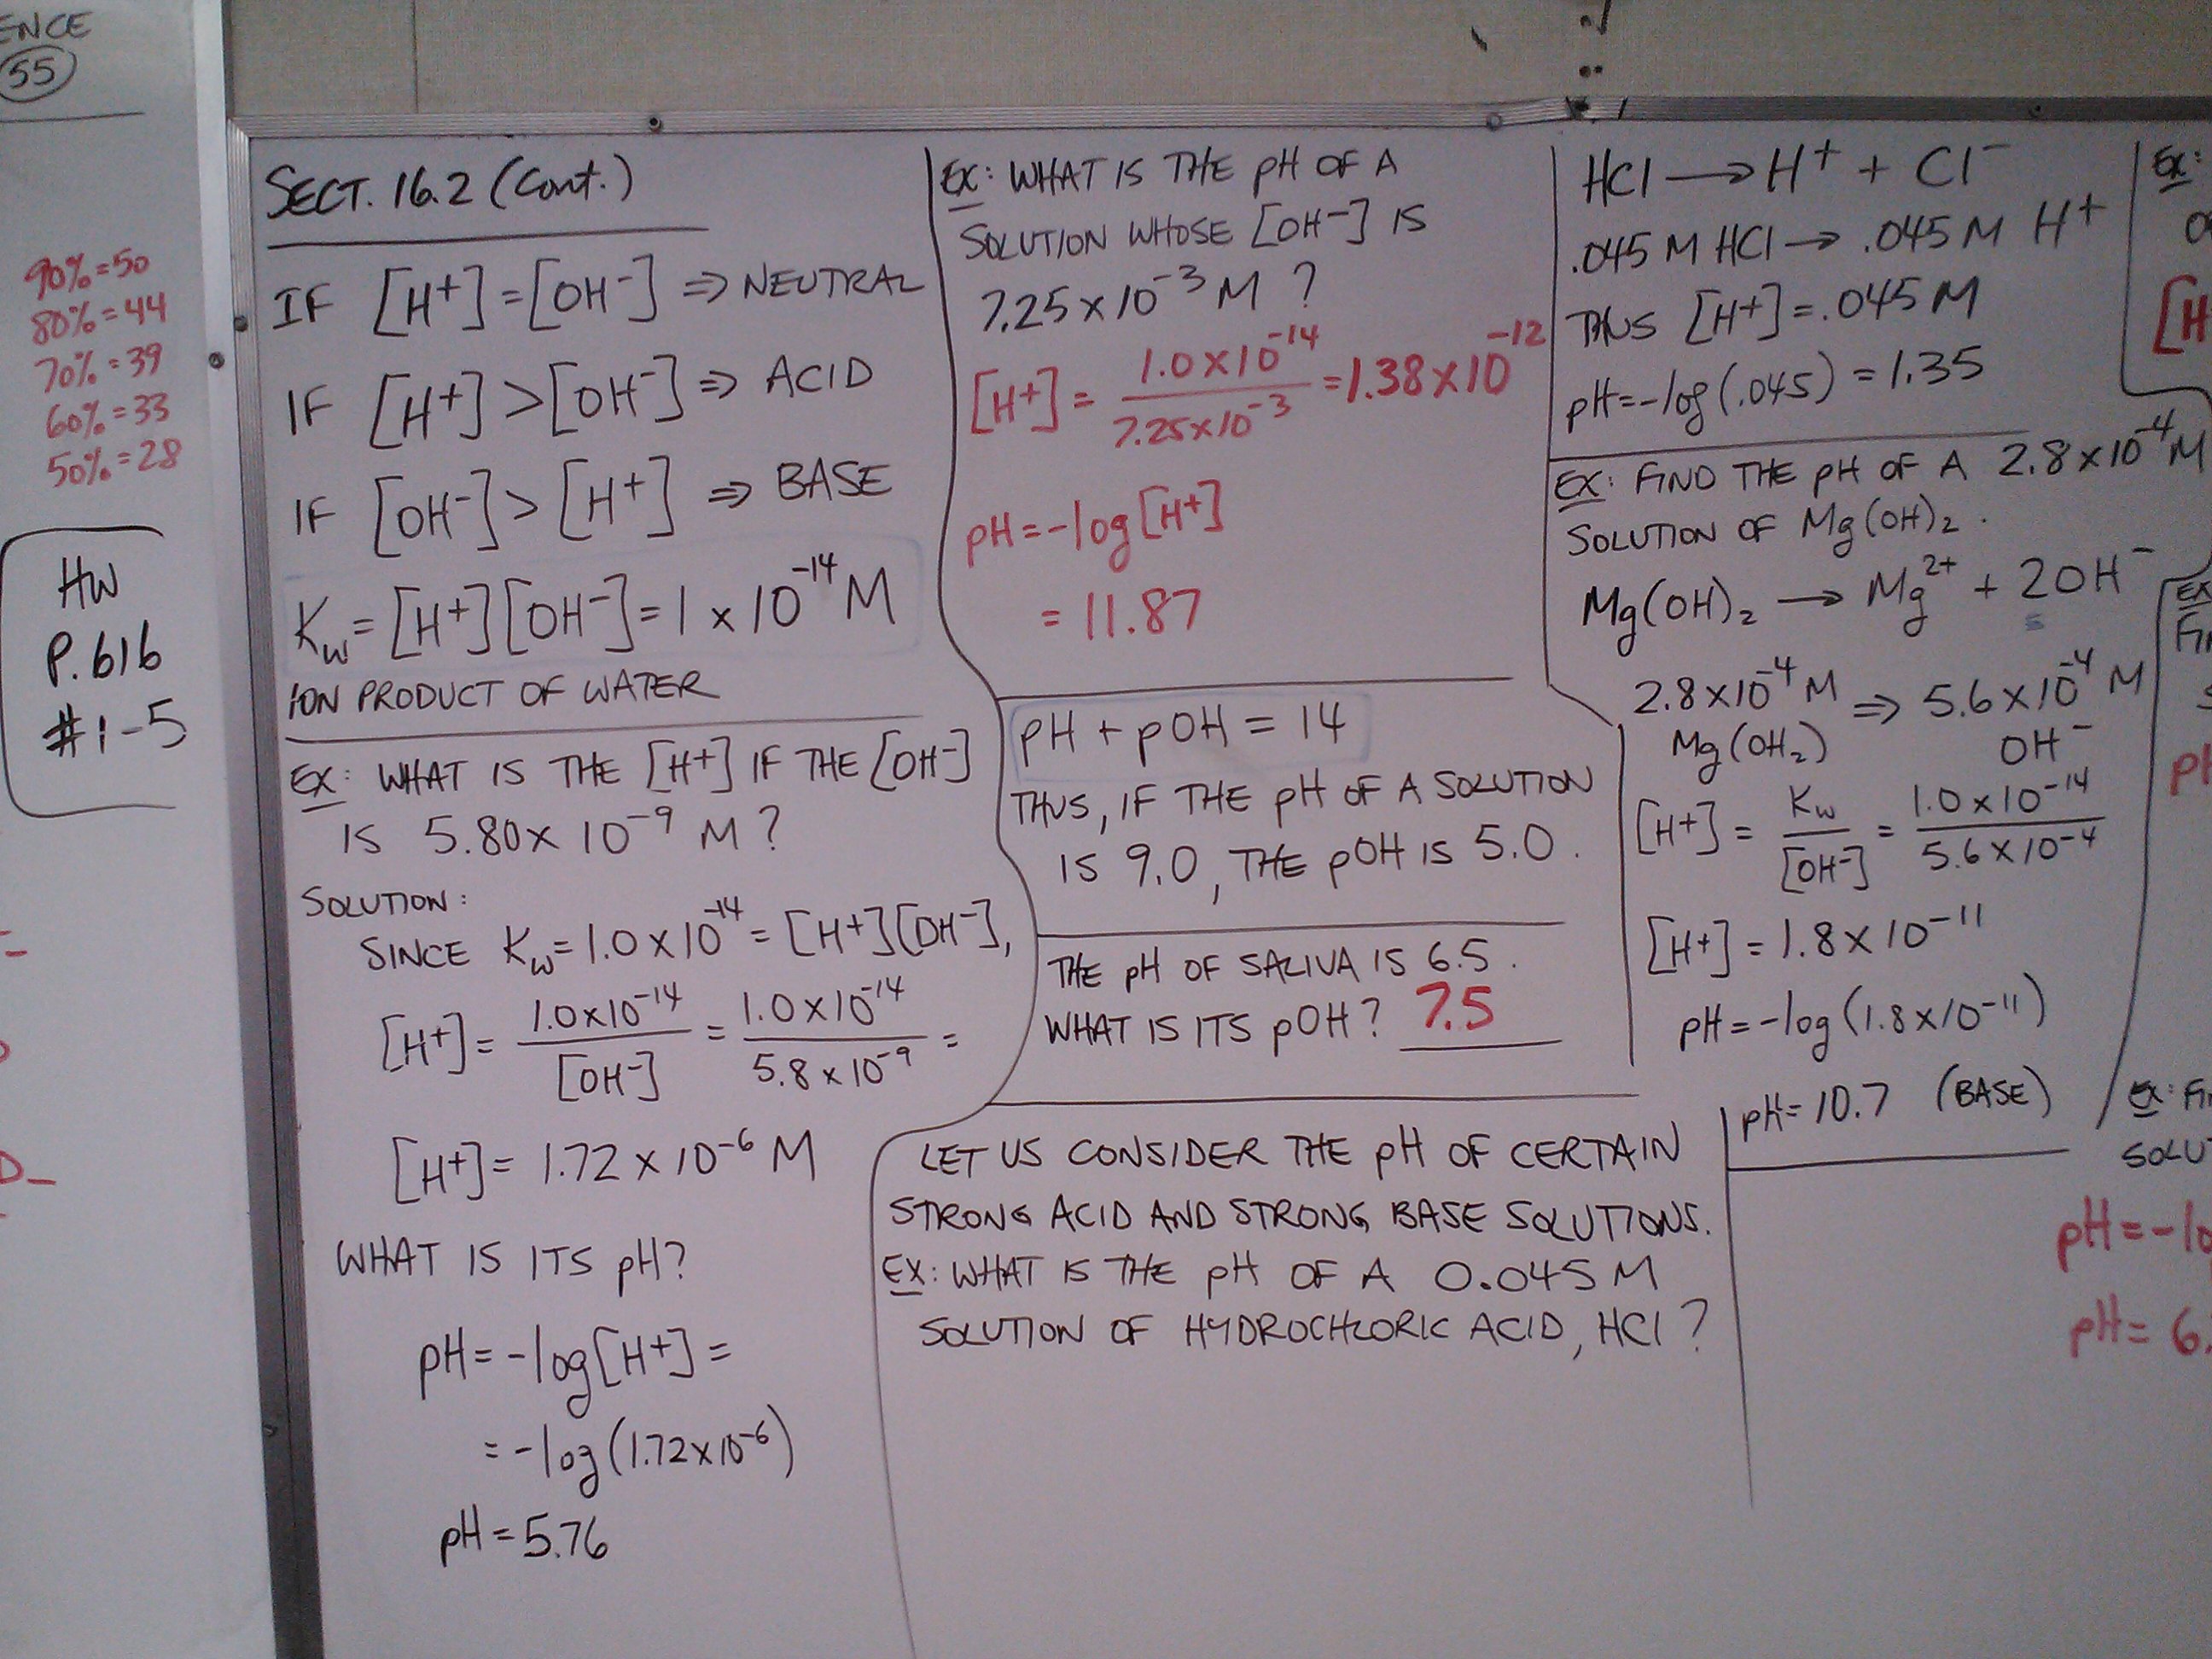 ENCE
55
90%=50
80%=44
70%=39
60%=33
50%=28
HW
P.616
#1-5
D_
SECT. 16.2 (Cont.)
IF [H⁺]=[OH⁻] ⇒ NEUTRAL
IF [H⁺]>[OH⁻] ⇒ ACID
IF [OH⁻]>[H⁺] ⇒ BASE
K_w=[H⁺][OH⁻]=1 x 10⁻¹⁴ M
ION PRODUCT OF WATER
EX: WHAT IS THE [H⁺] IF THE [OH⁻]
IS 5.80x10⁻⁹ M?
SOLUTION:
SINCE K_w=1.0x10⁻¹⁴=[H⁺][OH⁻],
[H⁺]= 1.0x10⁻¹⁴/[OH⁻] = 1.0x10⁻¹⁴/5.8x10⁻⁹ =
[H⁺]= 1.72x10⁻⁶ M
WHAT IS ITS pH?
pH=-log[H⁺]=
=-log(1.72x10⁻⁶)
pH=5.76
EX: WHAT IS THE pH OF A
SOLUTION WHOSE [OH⁻] IS
7.25x10⁻³ M?
[H⁺]= 1.0x10⁻¹⁴/7.25x10⁻³ =1.38x10⁻¹²
pH=-log[H⁺]
= 11.87
pH + pOH = 14
THUS, IF THE pH OF A SOLUTION
IS 9.0, THE pOH IS 5.0.
THE pH OF SALIVA IS 6.5.
WHAT IS ITS pOH? 7.5
LET US CONSIDER THE pH OF CERTAIN
STRONG ACID AND STRONG BASE SOLUTIONS.
EX: WHAT IS THE pH OF A 0.045 M
SOLUTION OF HYDROCHLORIC ACID, HCl?
HCl → H⁺ + Cl⁻
.045 M HCl → .045 M H⁺
THUS [H⁺]=.045 M
pH=-log(.045)=1.35
EX: FIND THE pH OF A 2.8x10⁻⁴ M
SOLUTION OF Mg(OH)₂.
Mg(OH)₂ → Mg²⁺ + 2OH⁻
2.8x10⁻⁴ M ⇒ 5.6x10⁻⁴ M
Mg(OH₂) OH⁻
[H⁺]= K_w/[OH⁻] = 1.0x10⁻¹⁴/5.6x10⁻⁴
[H⁺]=1.8x10⁻¹¹
pH=-log(1.8x10⁻¹¹)
pH=10.7 (BASE)
EX:
[H
EX
FI
pH
EX: FI
SOLU
pH=-lo
pH= 6.